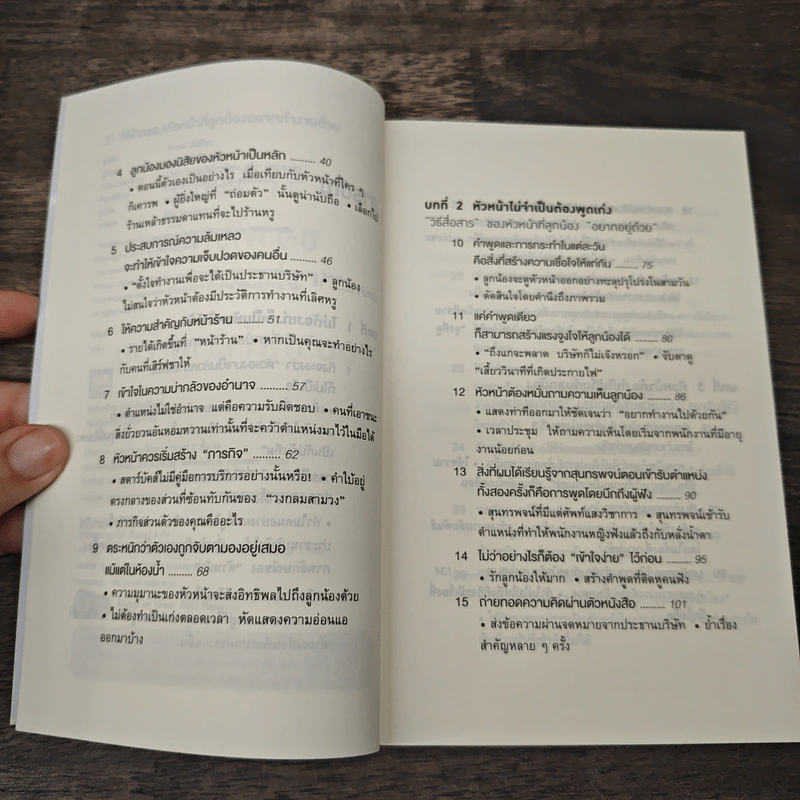 4 ลูกน้องมองนิสัยของหัวหน้าเป็นหลัก ......... 40
• ตอนนี้ตัวเองเป็นอย่างไร เมื่อเทียบกับหัวหน้าที่ใคร ๆ
ก็เคารพ • ผู้ยิ่งใหญ่ที่ "ถ่อมตัว" นั้นดูน่านับถือ • เลือกไป
ร้านเหล้าธรรมดาแทนที่จะไปร้านหรู
5 ประสบการณ์ความล้มเหลว
จะทำให้เข้าใจความเจ็บปวดของคนอื่น ......... 46
• "ตั้งใจทำงานเพื่อจะได้เป็นประธานบริษัท" • ลูกน้อง
ไม่สนใจว่าหัวหน้าต้องมีประวัติการทำงานที่เลิศหรู
6 ให้ความสำคัญกับหน้าร้าน ......... 51
• รายได้เกิดขึ้นที่ "หน้าร้าน" • หากเป็นคุณจะทำอย่างไร
กับคนที่เสิร์ฟชาให้
7 เข้าใจในความน่ากลัวของอำนาจ ......... 57
• ตำแหน่งไม่ใช่อำนาจ แต่คือความรับผิดชอบ • คนที่เอาชนะ
สิ่งยั่วยวนอันหอมหวานเท่านั้นที่จะคว้าตำแหน่งมาไว้ในมือได้
8 หัวหน้าควรเริ่มสร้าง "ภารกิจ" ......... 62
• สตาร์บัคส์ไม่มีคู่มือการบริการอย่างนั้นหรือ! • คำใบ้อยู่
ตรงกลางของส่วนที่ซ้อนทับกันของ "วงกลมสามวง"
• ภารกิจส่วนตัวของคุณคืออะไร
9 ตระหนักว่าตัวเองถูกจับตามองอยู่เสมอ
แม้แต่ในห้องน้ำ ......... 68
• ความมุมานะของหัวหน้าจะส่งอิทธิพลไปถึงลูกน้องด้วย
• ไม่ต้องทำเป็นเก่งตลอดเวลา หัดแสดงความอ่อนแอ
ออกมาบ้าง
บทที่ 2 หัวหน้าไม่จำเป็นต้องพูดเก่ง
"วิธีสื่อสาร" ของหัวหน้าที่ลูกน้อง "อยากอยู่ด้วย"
10 คำพูดและการกระทำในแต่ละวัน
คือสิ่งที่สร้างความเชื่อใจให้แก่กัน ......... 75
• ลูกน้องจะดูหัวหน้าออกอย่างทะลุปรุโปร่งในสามวัน
• ตัดสินใจโดยคำนึงถึงภาพรวม
11 แค่คำพูดเดียว
ก็สามารถสร้างแรงจูงใจให้ลูกน้องได้ ......... 80
• "ถึงแกจะพลาด บริษัทก็ไม่เจ๊งหรอก" • จับตาดู
"เสี้ยววินาทีที่เกิดประกายไฟ"
12 หัวหน้าต้องหมั่นถามความเห็นลูกน้อง ......... 86
• แสดงท่าทีออกมาให้ชัดเจนว่า "อยากทำงานไปด้วยกัน"
• เวลาประชุม ให้ถามความเห็นโดยเริ่มจากพนักงานที่มีอายุ
งานน้อยก่อน
13 สิ่งที่ผมได้เรียนรู้จากสุนทรพจน์ตอนเข้ารับตำแหน่ง
ทั้งสองครั้งก็คือการพูดโดยนึกถึงผู้ฟัง ......... 90
• สุนทรพจน์ที่มีแต่ศัพท์แสงวิชาการ • สุนทรพจน์เข้ารับ
ตำแหน่งที่ทำให้พนักงานหญิงฟังแล้วถึงกับหลั่งน้ำตา
14 ไม่ว่าอย่างไรก็ต้อง "เข้าใจง่าย" ไว้ก่อน ......... 95
• รักลูกน้องให้มาก • สร้างคำพูดที่ติดหูคนฟัง
15 ถ่ายทอดความคิดผ่านตัวหนังสือ ......... 101
• ส่งข้อความผ่านจดหมายจากประธานบริษัท • ย้ำเรื่อง
สำคัญหลาย ๆ ครั้ง